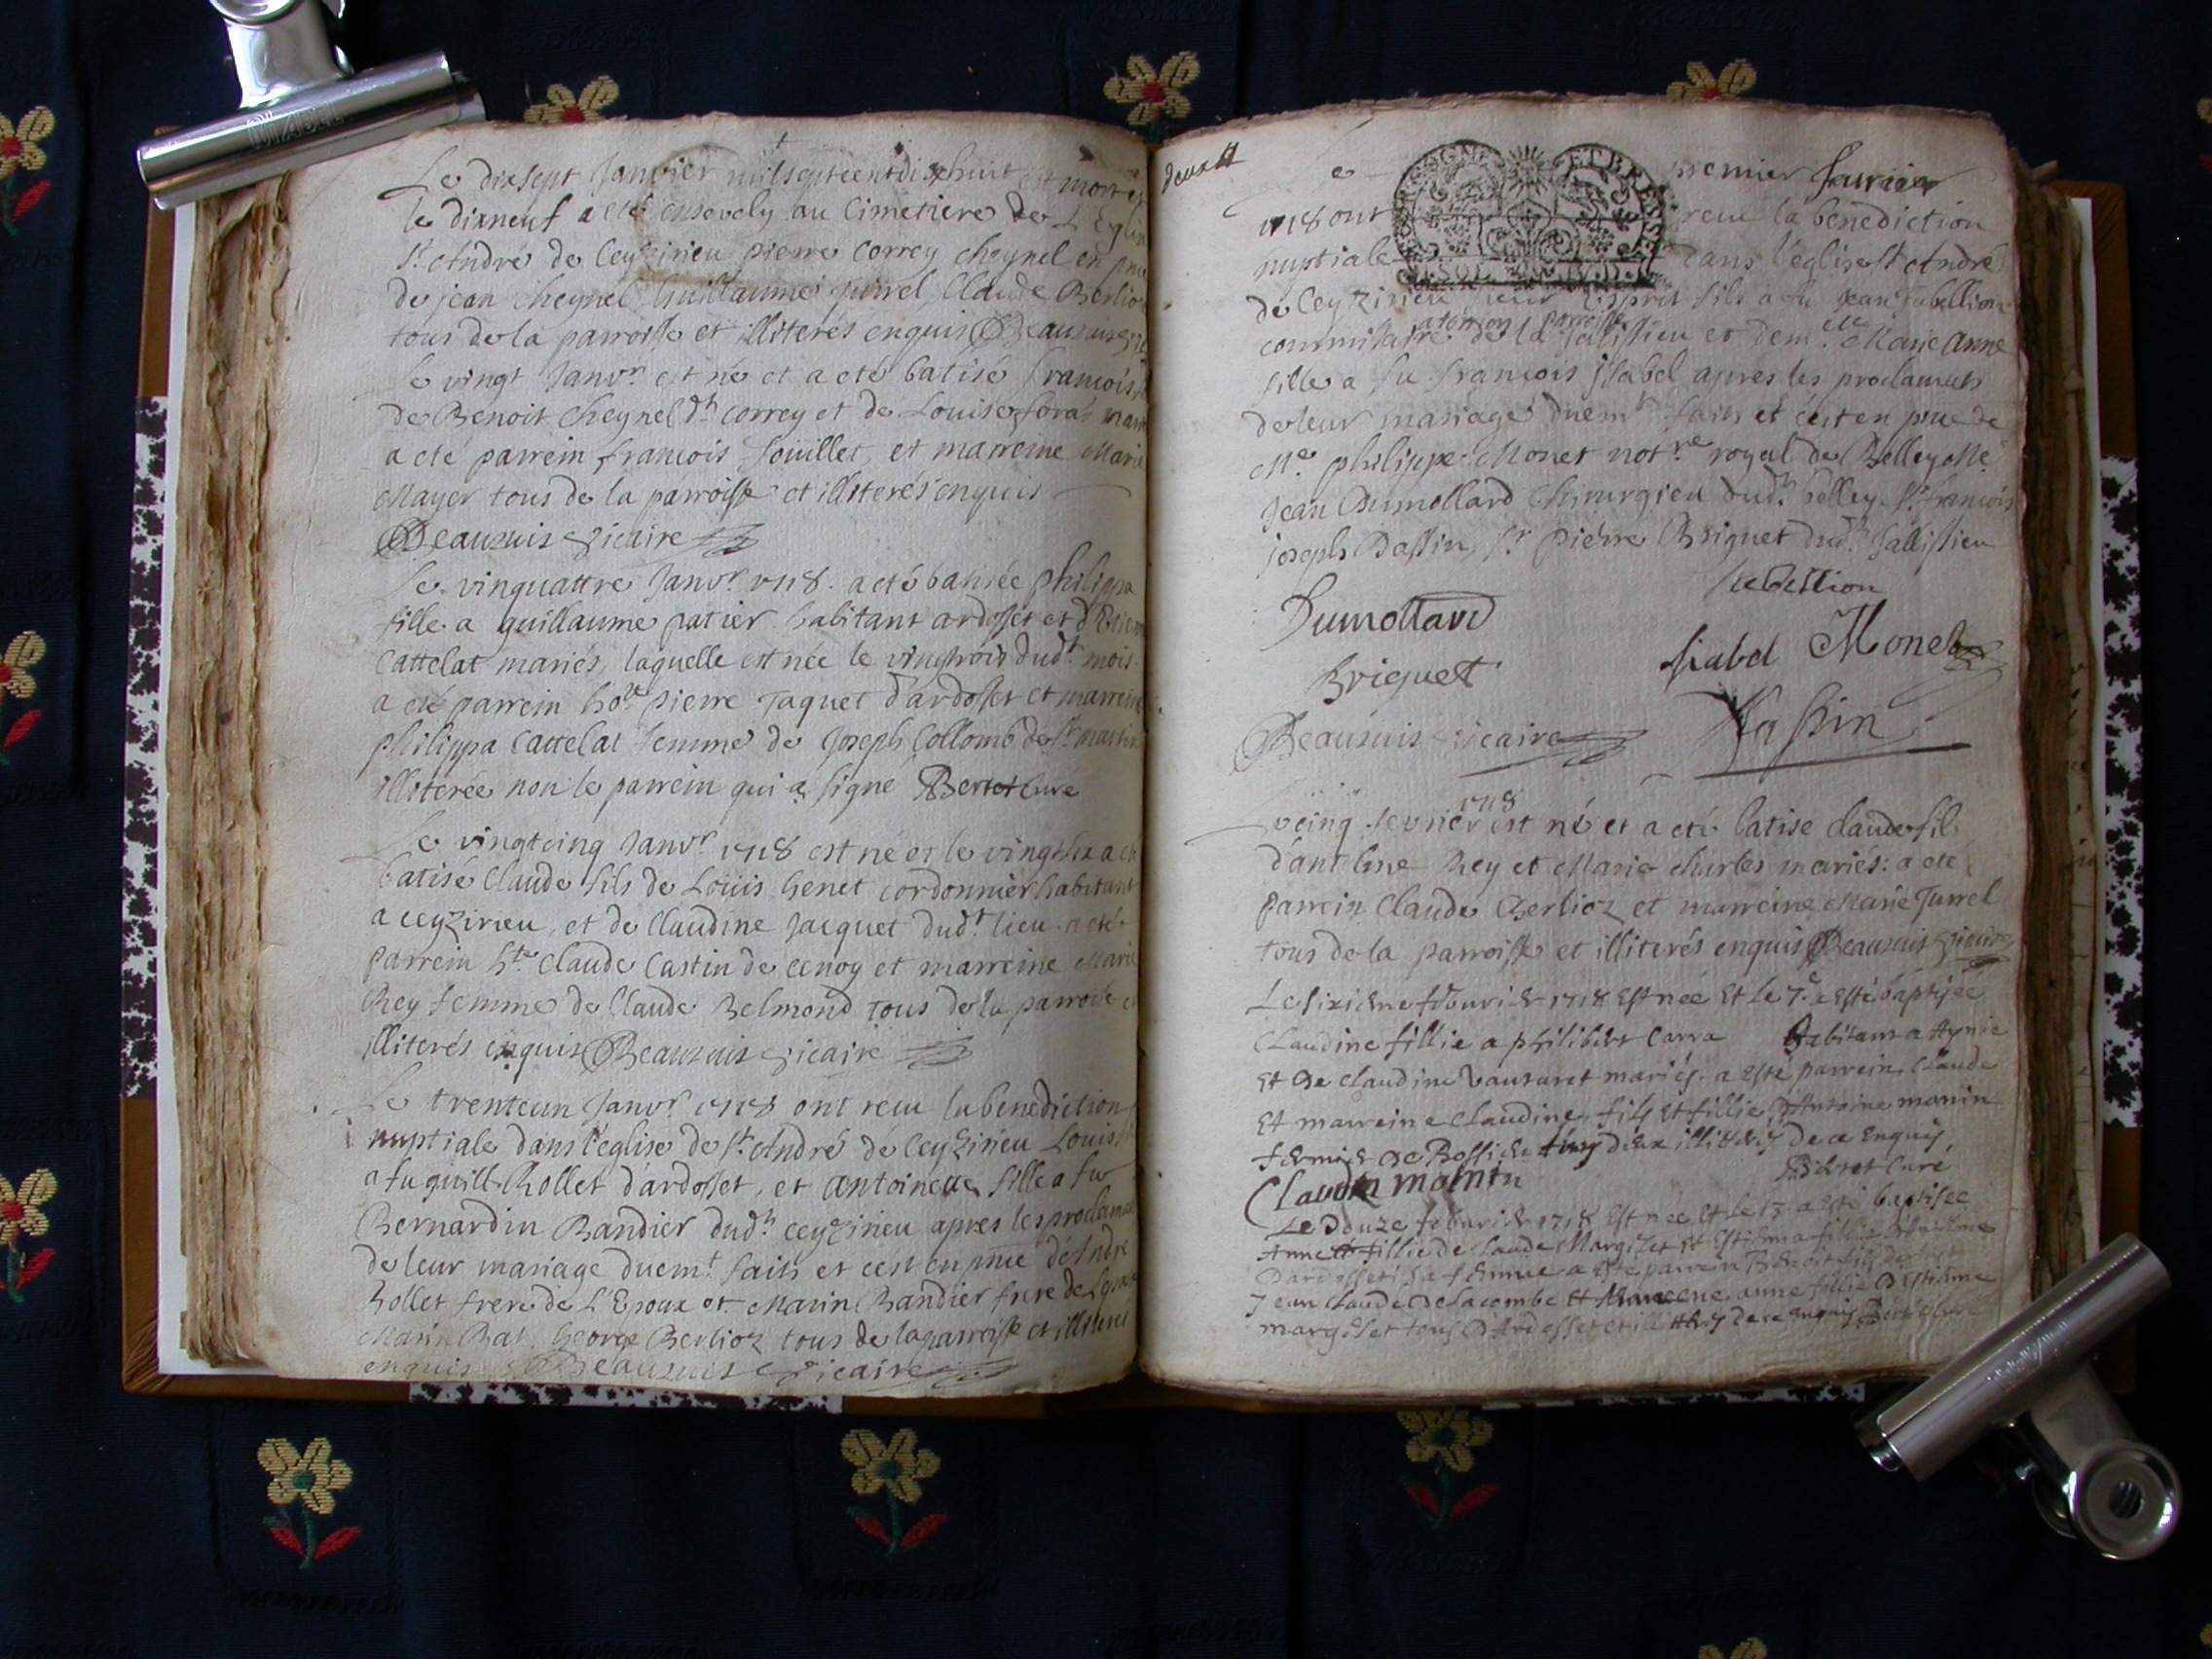 Le dixsept Janvier milseptcentdixhuit est mort et
le dixneuf a eté ensevely au Cimetiere de L'Eglise
St. André de Ceyzirieu pierre Correy cheynel en pnce
de jean cheynel Guillaume Jurrel Claude Berlioz
tous de la parroisse et illiterés enquis Beauzuis
Le vingt Janvr. est né et a eté batisé francois
de Benoit Cheynel dt. Correy et de Louise foras
a eté parrein francois Jouillet, et marreine Marie
Mayer tous de la parroisse et illiterés enquis
Beauzuis vicaire
Le vinquattre Janvr. 1718. a eté batisée philippa
fille a guillaume patier habitant ardosset et
Cattelat mariés, laquelle est née le vingtrois dudt. mois
a eté parrein pierre Jaquet d'ardosset et marreine
philippa Cattelat femme de Joseph Collomb de St. martin
illiterée non le parrein qui a signé Bertet Cure
Le vingtcinq Janvr. 1718 est né et le vingtsix a eté
batisé Claude fils de Loüis Genet cordonnier habitant
a ceyzirieu, et de Claudine Jacquet dudt. lieu. a eté
parrein Claude Castin de et marreine Marie
Rey femme de Claude Belmond tous de la parroisse et
illiterés enquis Beauzuis vicaire
Le trenteun Janvr. 1718 ont recu la benediction
nuptiale dans l'eglise de St. André de Ceyzirieu Louis
a fu guill. Rollet d'ardosset, et antoinette fille a fu
Bernardin Bandier dudt. ceyzirieu apres les proclamats
de leur mariage duemt. faits et cest en pnce d'André
Rollet frere de L'Epoux et Marin Bandier frere de
Marin Bal George Berlioz tous de la parroisse et illiterés
enquis Beauzuis vicaire
deux
Le premier fevrier
1718 ont receu la benediction
nuptiale dans l'eglise St. André
de Ceyzirieu fils a fu Jean Tabellion
a forson parroisse
commissaire de la Tallissieu et demelle. Marie Anne
fille a fu francois Jsabel apres les proclamats
de leur mariage duemt. faits et cest en pnce de
Me. philippe Monet notre. royal de Belley Me.
Jean Dumollard Chirurgien dudt. belley. Sr. francois
joseph Dassin, Sr. pierre Briquet dudt. Tallissieu
Tabellion
Dumollard
Jsabel Monet
Briquet
Beauzuis vicaire
1718
Le cinq fevrier est né et a eté batise claude fils
d'anthme Rey et Marie charles mariés: a eté
parrein Claude Berlioz et marreine Marie Jurrel
tous de la parroisse et illiterés enquis Beauzuis vicaire
Le sixiéme feburier 1718 est née Et le 7e. a esté baptisée
Claudine fillie a philibert Carra habitant a Aynie
Et de claudine mariés. a esté parrein, Claude
Et marreine Claudine, fils Et fillie d'Antoine manin
fermier de Rossi illiterés de ce Enquis,
Bertet Curé
Claudin manin
Le douze feburier 1718 Est née Et le 13 a esté baptisée
Anne fillie de claude Margillet Et
D'ardosset sa femme a esté parrein Benoit fils de
Jean claude Delacombe Et Marreine anne fillie D'Estienne
margillet tous D'Ardosset et illiterés de ce enquis Bertet Curé